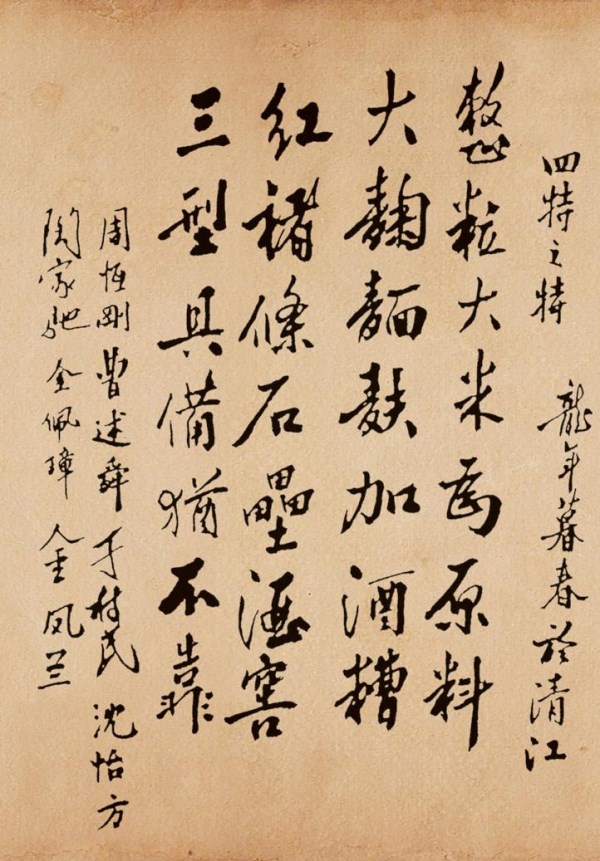 四特之特 龍年暮春於清江
整粒大米為原料
大麴麵麩加酒糟
紅褚條石壘酒窖
三型具備猶不靠
周恒剛 曹述舜 于树民 沈怡方
陶家驰 全佩璋 金凤兰